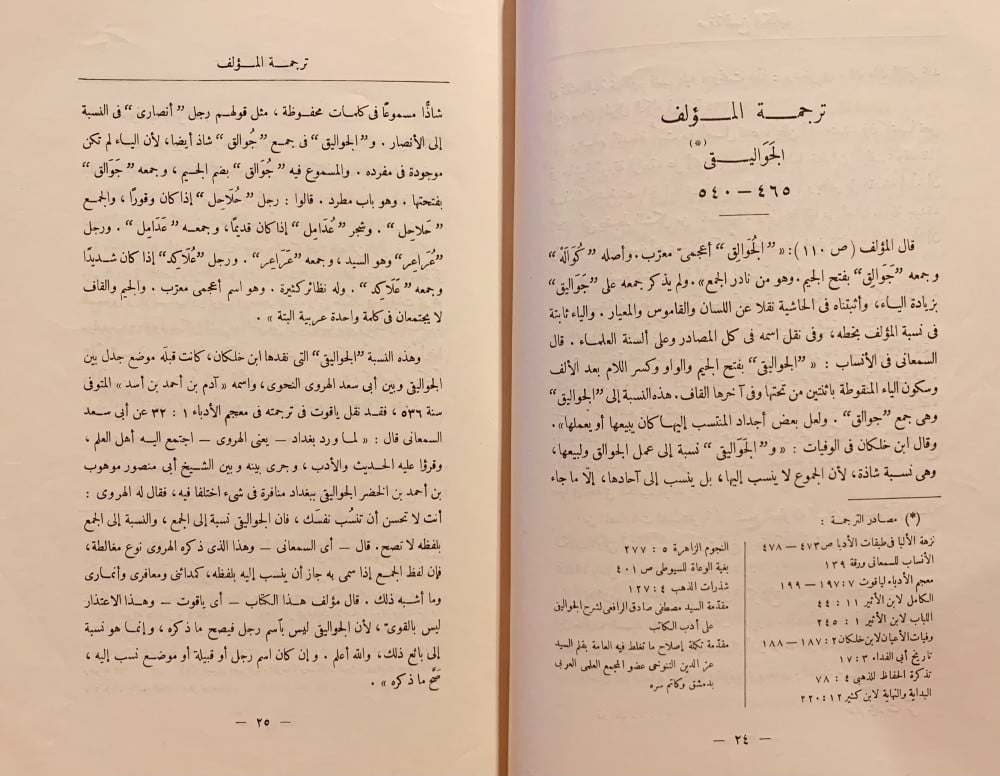 ترجمـــة المـــؤلف
الجَوَاليـــقى (*)
٤٦٥ — ٥٤٠
قال المؤلف (ص ١١٠): « ”الجُوَالِق“ أعجمىّ معرّب. وأصله ”كُوَالَهْ“
وجمعه ”جَوَالِق“ بفتح الجيم. وهو من نادر الجمع». ولم يذكر جمعه على ”جَوَاليق“
بزيادة الياء، وأثبتناه فى الحاشية نقلا عن اللسان والقاموس والمعيار. والياء ثابتة
فى نسبة المؤلف بخطه، وفى نقل اسمه فى كل المصادر وعلى ألسنة العلماء. قال
السمعانى فى الأنساب: « ”الجواليقى“ بفتح الجيم والواو وكسر اللام بعد الألف
وسكون الياء المنقوطة باثنتين من تحتها وفى آخرها القاف. هذه النسبة إلى ”الجواليق“
وهى جمع ”جوالق“. ولعل بعض أجداد المنتسب إليها كان يبيعها أو يعملها».
وقال ابن خلكان فى الوفيات: « و”الجَوَاليقى“ نسبة إلى عمل الجوالق ولبيعها،
وهى نسبة شاذة، لأن الجموع لا ينسب إليها، بل ينسب إلى آحادها، إلّا ما جاء
(*) مصادر الترجمة :
نزهة الألبا فى طبقات الأدبا ص ٤٧٣ — ٤٧٨
الأنساب للسمعانى ورقة ١٣٩
معجم الأدباء لياقوت ٧: ١٩٧ — ١٩٩
الكامل لابن الأثير ١١ : ٤٤
اللباب لابن الأثير ١ : ٢٤٥
وفيات الأعيان لابن خلكان ٢: ١٨٧ — ١٨٨
تاريخ أبى الفداء ٣: ١٧
تذكرة الحفاظ للذهبى ٤ : ٧٨
البداية والنهاية لابن كثير ١٢: ٢٢٠
النجوم الزاهرة ٥ : ٢٧٧
بغية الوعاة للسيوطى ص ٤٠١
شذرات الذهب ٤: ١٢٧
مقدّمة السيد مصطفى صادق الرافعى لشرح الجواليق
على أدب الكاتب
مقدّمة تكملة إصلاح ما تغلط فيه العامة بقلم السيد
عز الدين التنوخى عضو المجمع العلمى العربى
بدمشق وكاتم سره
— ٢٤ —
ترجمـــة المـــؤلف
شاذًّا مسموعًا فى كلمات محفوظة، مثل قولهم رجل ”أنصارى“ فى النسبة
إلى الأنصار. و”الجواليق“ فى جمع ”جُوالق“ شاذ أيضا، لأن الياء لم تكن
موجودة فى مفرده. والمسموع فيه ”جُوَالق“ بضم الجيم، وجمعه ”جَوَالق“
بفتحتها. وهو باب مطرد. قالوا: رجل ”حُلَاحِل“ إذا كان وقورًا، والجمع
”حَلاحِل“. وشجر ”عُدَامِل“ إذا كان قديمًا، وجمعـه ”عَدَامِل“. ورجل
”عُرَاعِر“ وهو السيد، وجمعه ”عَرَاعِر“. ورجل ”عُلَاكِد“ إذا كان شديدًا
وجمعه ”عَلَاكِد“. وله نظائر كثيرة. وهو اسم أعجمى معرّب. والجيم والقاف
لا يجتمعان فى كلمة واحدة عربية البتة».
وهذه النسبة ”الجواليقى“ التى نقدها ابن خلكان، كانت قبلَه موضع جدل بين
الجواليقى وبين أبى سعد الهروى النحوى، واسمه «آدم بن أحمد بن أسد» المتوفى
سنة ٥٣٦، فقد نقل ياقوت فى ترجمته فى معجم الأدباء ١ : ٣٢ عن أبى سعد
السمعانى قال: « لما ورد بغداد — يعنى الهروى — اجتمع اليه أهل العلم،
وقرؤا عليه الحديث والأدب، وجرى بينه وبين الشيخ أبى منصور موهوب
بن أحمد بن الخضر الجواليقى ببغداد منافرة فى شىء اختلفا فيه، فقال له الهروى :
أنت لا تحسن أن تنسُب نفسَك، فان الجواليقى نسبة إلى الجمع، والنسبة إلى الجمع
بلفظه لا تصح. قال — أى السمعانى — وهذا الذى ذكره الهروى نوع مغالطة،
فإن لفظ الجمع إذا سمى به جاز أن ينسب إليه بلفظه، كمدائنى ومعافرى وأنمارى
وما أشبه ذلك. قال مؤلف هذا الكتاب — أى ياقوت — وهذا الاعتذار
ليس بالقوىّ، لأن الجواليق ليس بآسم رجل فيصح ما ذكره، وإنما هو نسبة
إلى بائع ذلك، والله أعلم. وإن كان اسم رجل أو قبيلة أو موضع نسب إليه،
صحّ ما ذكره».
— ٢٥ —